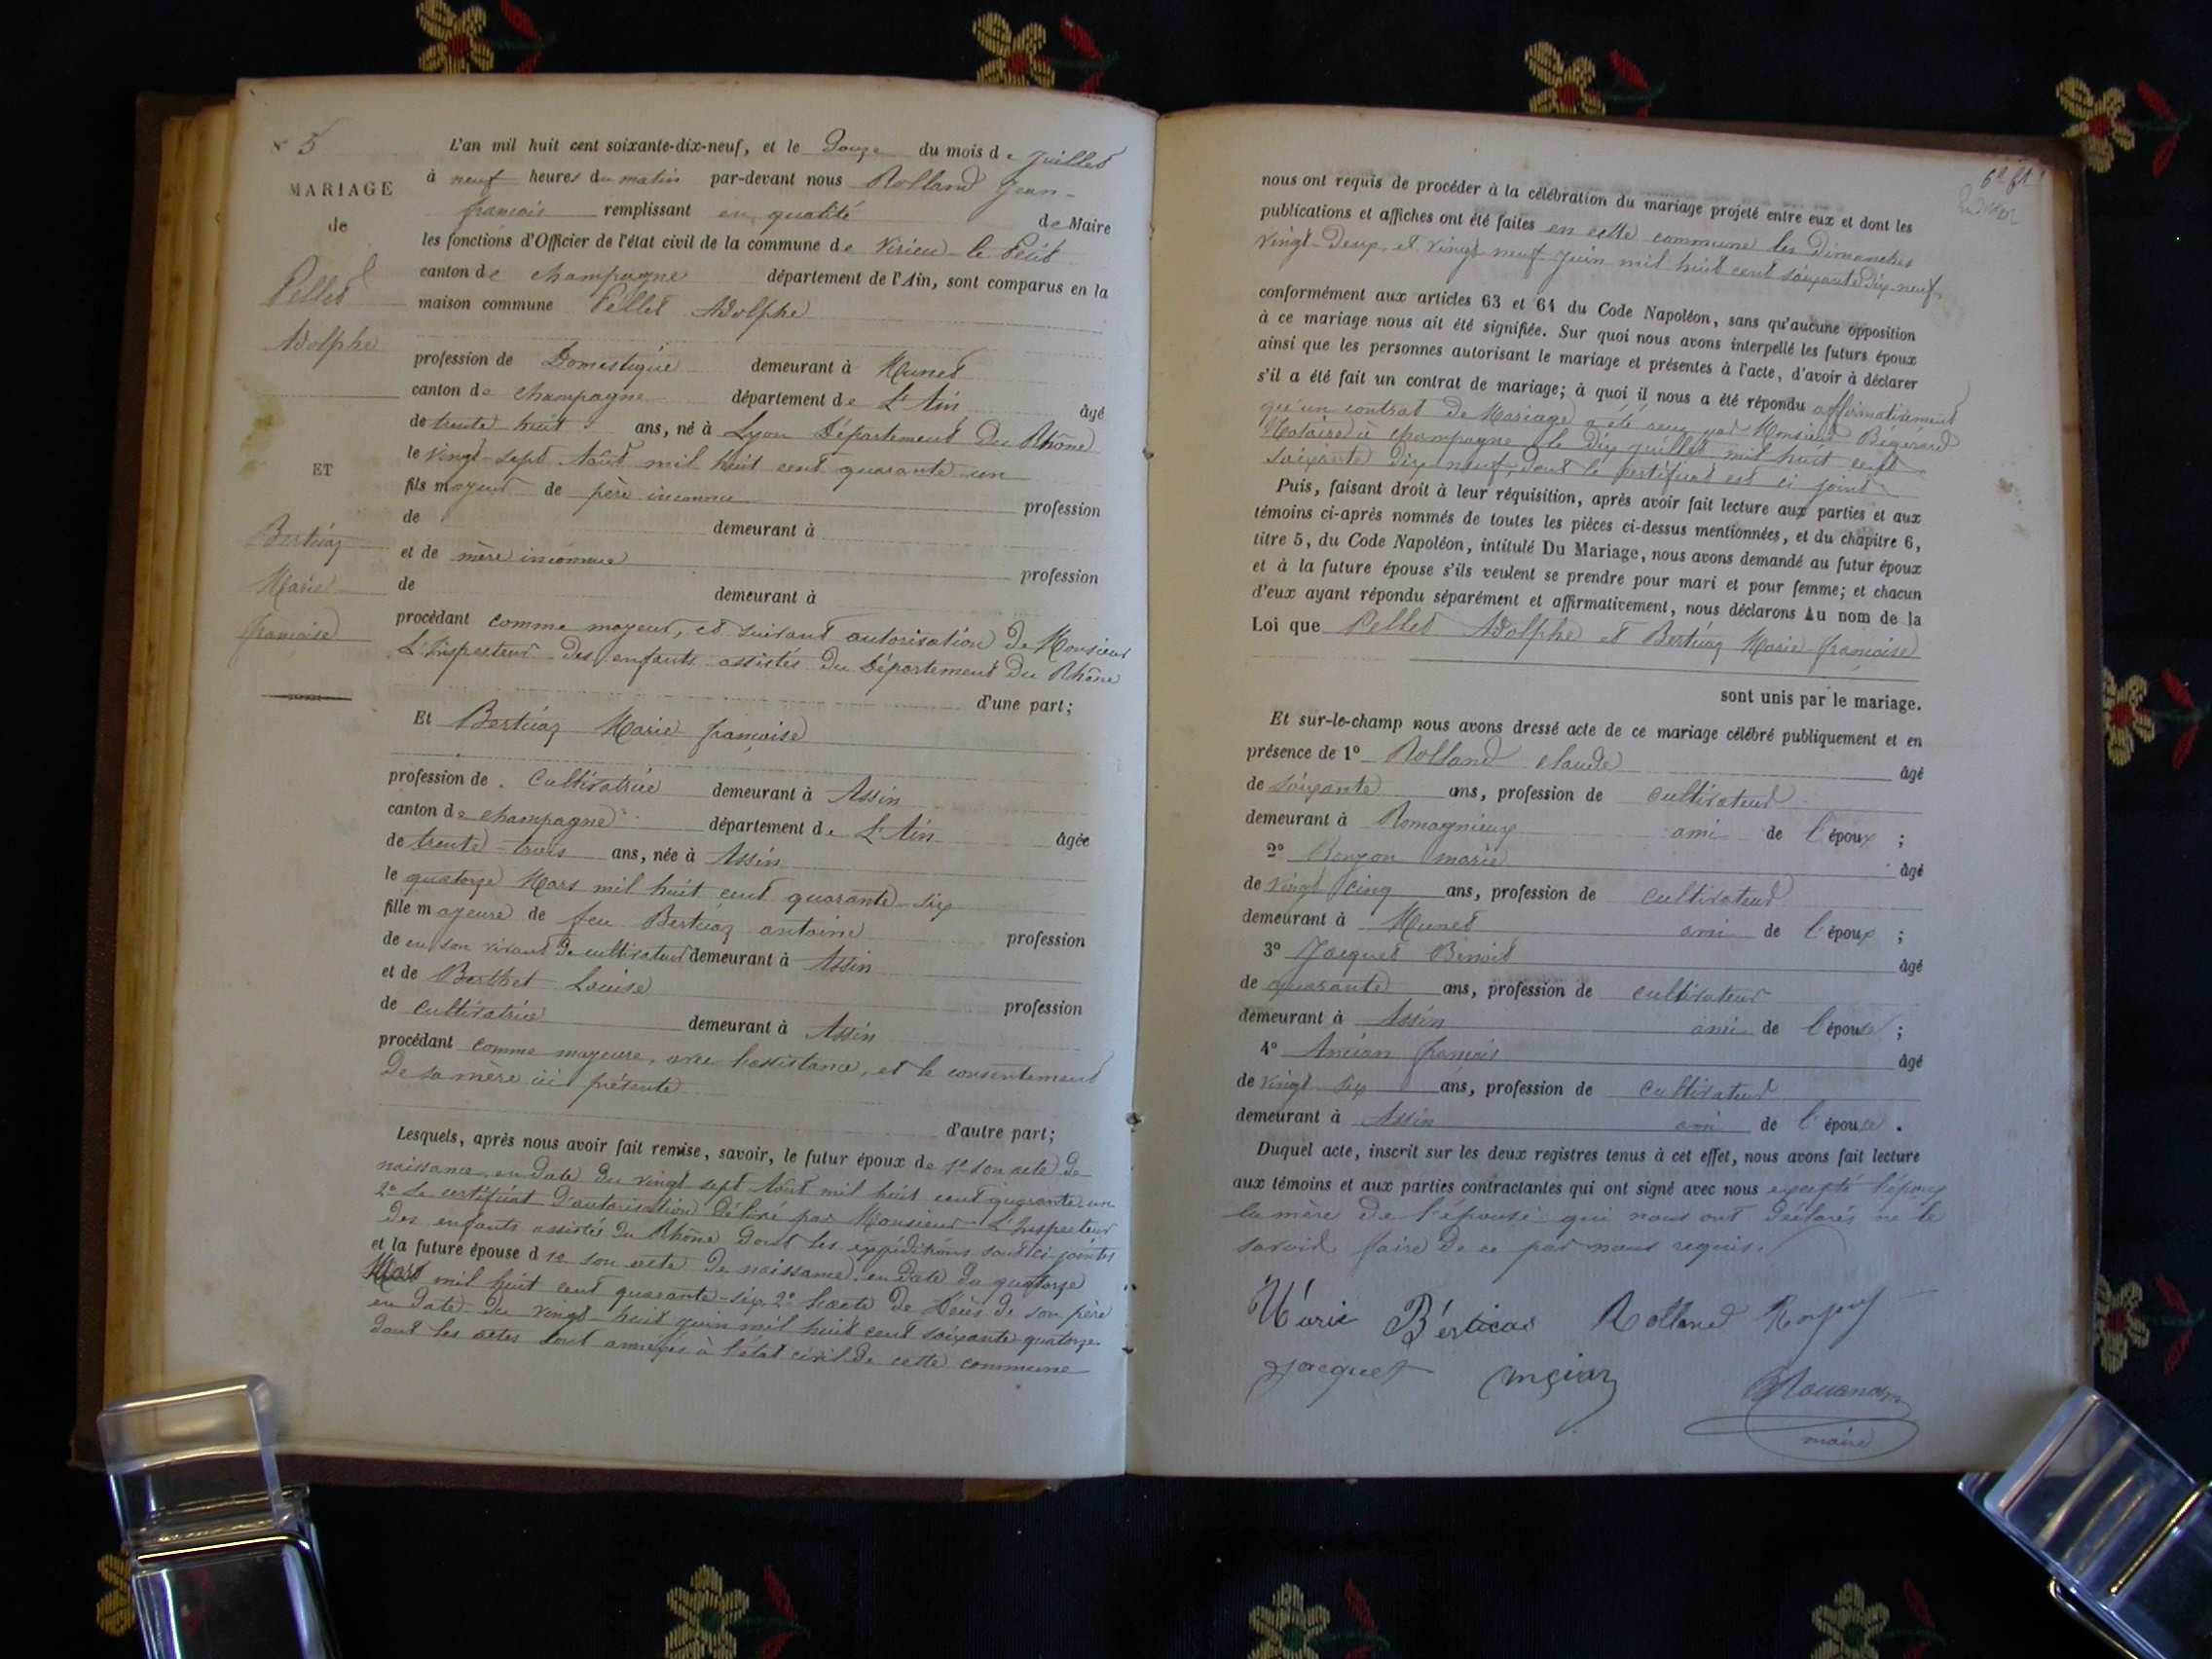 N° 5
MARIAGE
de
Pellet
Adolphe
ET
Bertuaz
Marie
françoise
L'an mil huit cent soixante-dix-neuf, et le Douze du mois de Juillet
à neuf heures du matin par-devant nous Rolland Jean-
françois remplissant en qualité de Maire
les fonctions d'Officier de l'état civil de la commune de Virieu-le-Petit
canton de champagne département de l'Ain, sont comparus en la
maison commune Pellet Adolphe
profession de Domestique demeurant à Munet
canton de champagne département de L'Ain âgé
de trente huit ans, né à Lyon Département Du Rhône
le vingt-sept Août mil huit cent quarante-un
fils majeur de père inconnu profession
de demeurant à
et de mère inconnue profession
de demeurant à
procédant comme majeur, et suivant autorisation De Monsieur
L'Inspecteur Des enfants assistés Du Département Du Rhône
d'une part;
Et Bertuaz Marie françoise
profession de Cultivatrice demeurant à Assin
canton de champagne département de L'Ain âgée
de trente-trois ans, née à Assin
le quatorze Mars mil huit cent quarante-six
fille majeure de feu Bertuaz antoine profession
de en son vivant De cultivateur demeurant à Assin
et de Berthet Louise profession
de cultivatrice demeurant à Assin
procédant comme majeure, avec l'assistance, et le consentement
De sa mère ici présente
d'autre part;
Lesquels, après nous avoir fait remise, savoir, le futur époux de 1° son acte De
naissance en Date Du vingt sept Août mil huit cent quarante un
2° Le certificat D'autorisation Délivré par Monsieur L'Inspecteur
Des enfants assistés Du Rhône Dont les expéditions sont ci jointes
et la future épouse d 1° son acte De naissance en Date Du quatorze
Mars mil huit cent quarante-six 2° l'acte De Décès De son père
en Date Du vingt-huit juin mil huit cent soixante quatorze
Dont les actes sont annexés à l'état civil De cette commune
nous ont requis de procéder à la célébration du mariage projeté entre eux et dont les
publications et affiches ont été faites en cette commune les Dimanches
vingt-Deux et vingt neuf Juin mil huit cent soixante Dix-neuf
conformément aux articles 63 et 64 du Code Napoléon, sans qu'aucune opposition
à ce mariage nous ait été signifiée. Sur quoi nous avons interpellé les futurs époux
ainsi que les personnes autorisant le mariage et présentes à l'acte, d'avoir à déclarer
s'il a été fait un contrat de mariage; à quoi il nous a été répondu affirmativement
qu'un contrat De Mariage a été reçu par Monsieur
Notaire à champagne le Dix juillet mil huit cent
soixante Dix neuf, Dont le certificat est ci joint
Puis, faisant droit à leur réquisition, après avoir fait lecture aux parties et aux
témoins ci-après nommés de toutes les pièces ci-dessus mentionnées, et du chapitre 6,
titre 5, du Code Napoléon, intitulé Du Mariage, nous avons demandé au futur époux
et à la future épouse s'ils veulent se prendre pour mari et pour femme; et chacun
d'eux ayant répondu séparément et affirmativement, nous déclarons Au nom de la
Loi que Pellet Adolphe et Bertuaz Marie françoise
sont unis par le mariage.
Et sur-le-champ nous avons dressé acte de ce mariage célébré publiquement et en
présence de 1° Rolland claude âgé
de soixante ans, profession de cultivateur
demeurant à Romagnieux ami de l'époux ;
2° marie âgé
de vingt cinq ans, profession de cultivateur
demeurant à Munet ami de l'époux ;
3° Jacquet Benoit âgé
de quarante ans, profession de cultivateur
demeurant à Assin ami de l'épouse ;
4° Ancian françois âgé
de vingt six ans, profession de cultivateur
demeurant à Assin ami de l'épouse .
Duquel acte, inscrit sur les deux registres tenus à cet effet, nous avons fait lecture
aux témoins et aux parties contractantes qui ont signé avec nous excepté l'époux
la mère De l'épouse qui nous ont Déclarés ne le
savoir faire De ce par nous requis.
Marie Berticas Rolland
Jacquet
maire